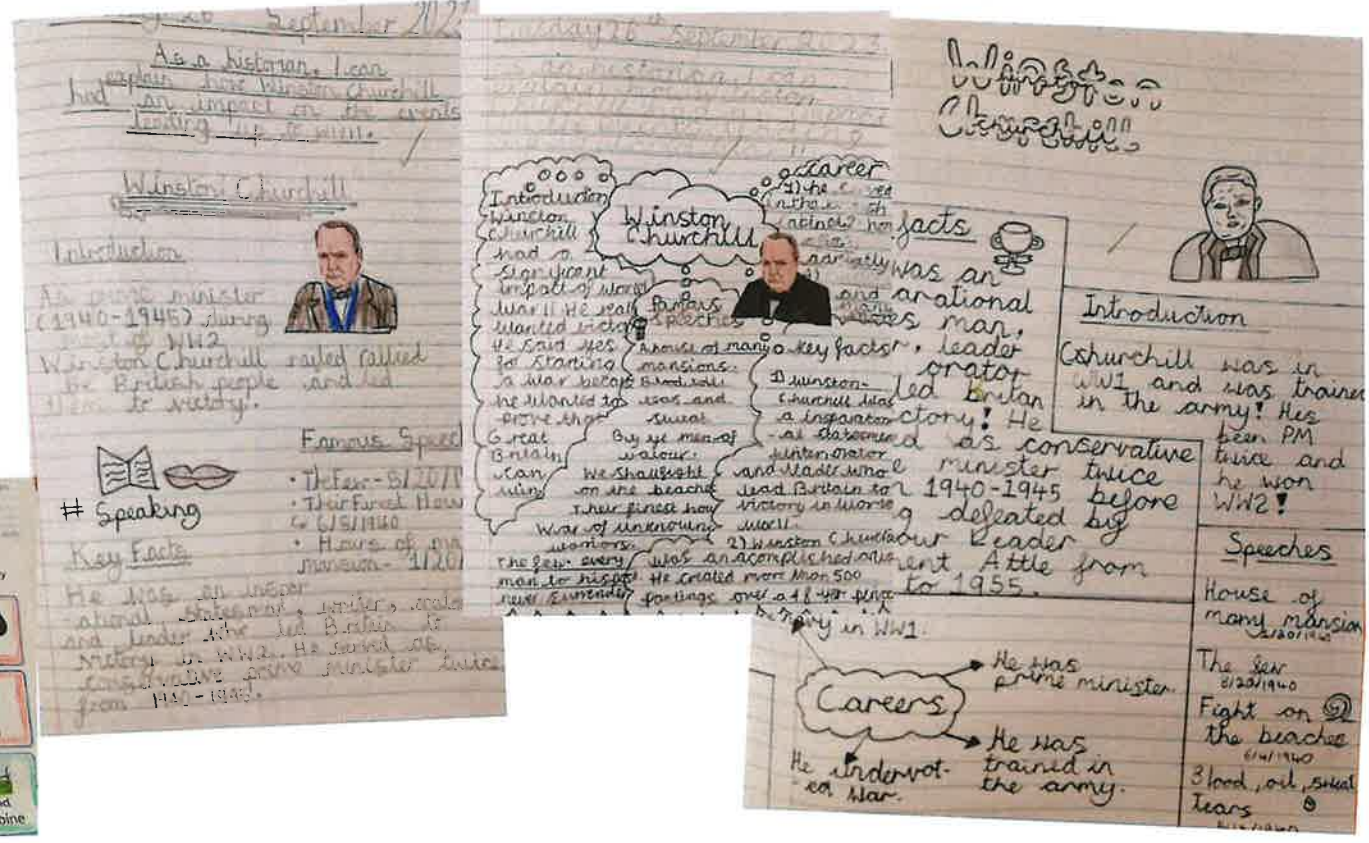 September 202
As a historian, I can
explain how Winston Churchill
had an impact on the events
leading up to WWII.
Winston Churchill
Introduction
As prime minister
(1940-1945) during
most of WW2
Winston Churchill railed rallied
the British people and led
them to victory.
# Speaking
Famous Speec
• The Few - 8/20/1
• Their Finest Hour
6/5/1940
• House of ma
mansion - 1/20/
Key Facts
He was an inspar
ational, statesman, writer, orator
and leader who led Britain to
victory in WW2. He served as
conservative prime minister twice
from 1940-1945.
Tuesday 26th September 2023
As an historian, I can
explain how Winston
Churchill had
Introduction
Winston
Churchill
had a
significant
impact of world
War II He reall
wanted victo
He said yes
for starting
a war becaus
he wanted to
prove that
Great
Britain
can
win
Winston
Churchill
Famous
speeches
A house of many
mansions.
Blood toil
teas and
sweat
By ye men of
valour.
We shall fight
on the beache
Their finest hou
War of unknown
warriors.
The few. every
man to his post
never surrender
career
1) he
in the
Key facts
1) winston
Churchill was
a insparation
al statesmen
writer orator
and leader who
lead Britain to
victory in world
war II.
2) Winston Churc
was an acomplished artis
He created more than 500
paintings over a 48 year perio
facts
was an
arational
es man,
, leader
orator
led Britan
ctory! He
d as conservative
minister twice
1940-1945 before
g defeated by
our Leader
ent Attle from
to 1955.
Navy in WW1.
Careers
He was
prime minister.
He was
trained in
the army.
He undervot-
ed war.
Winston
Churchill
Introduction
Cshurchill was in
WW1 and was trained
in the army! Hes
been PM
twice and
he won
WW2!
Speeches
House of
many mansion
1/20/1940
The few
8/20/1940
Fight on
the beaches
6/4/1940
Blood, oil, sweat
Tears
nd
bine